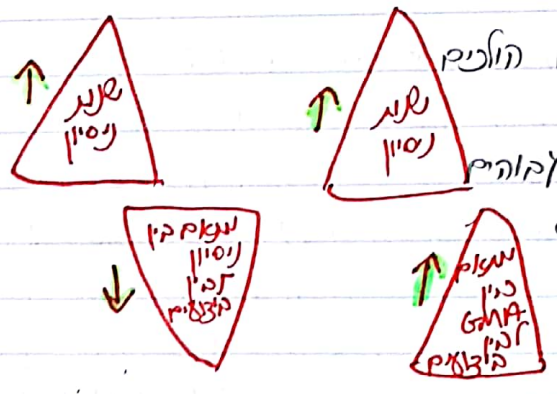 הולכים
שנות
ניסיון
שנות
ניסיון
גבוהים
מתאם בין
ניסיון
לבין
ביצועים
מתאם
בין
GMA
לבין
ביצועים